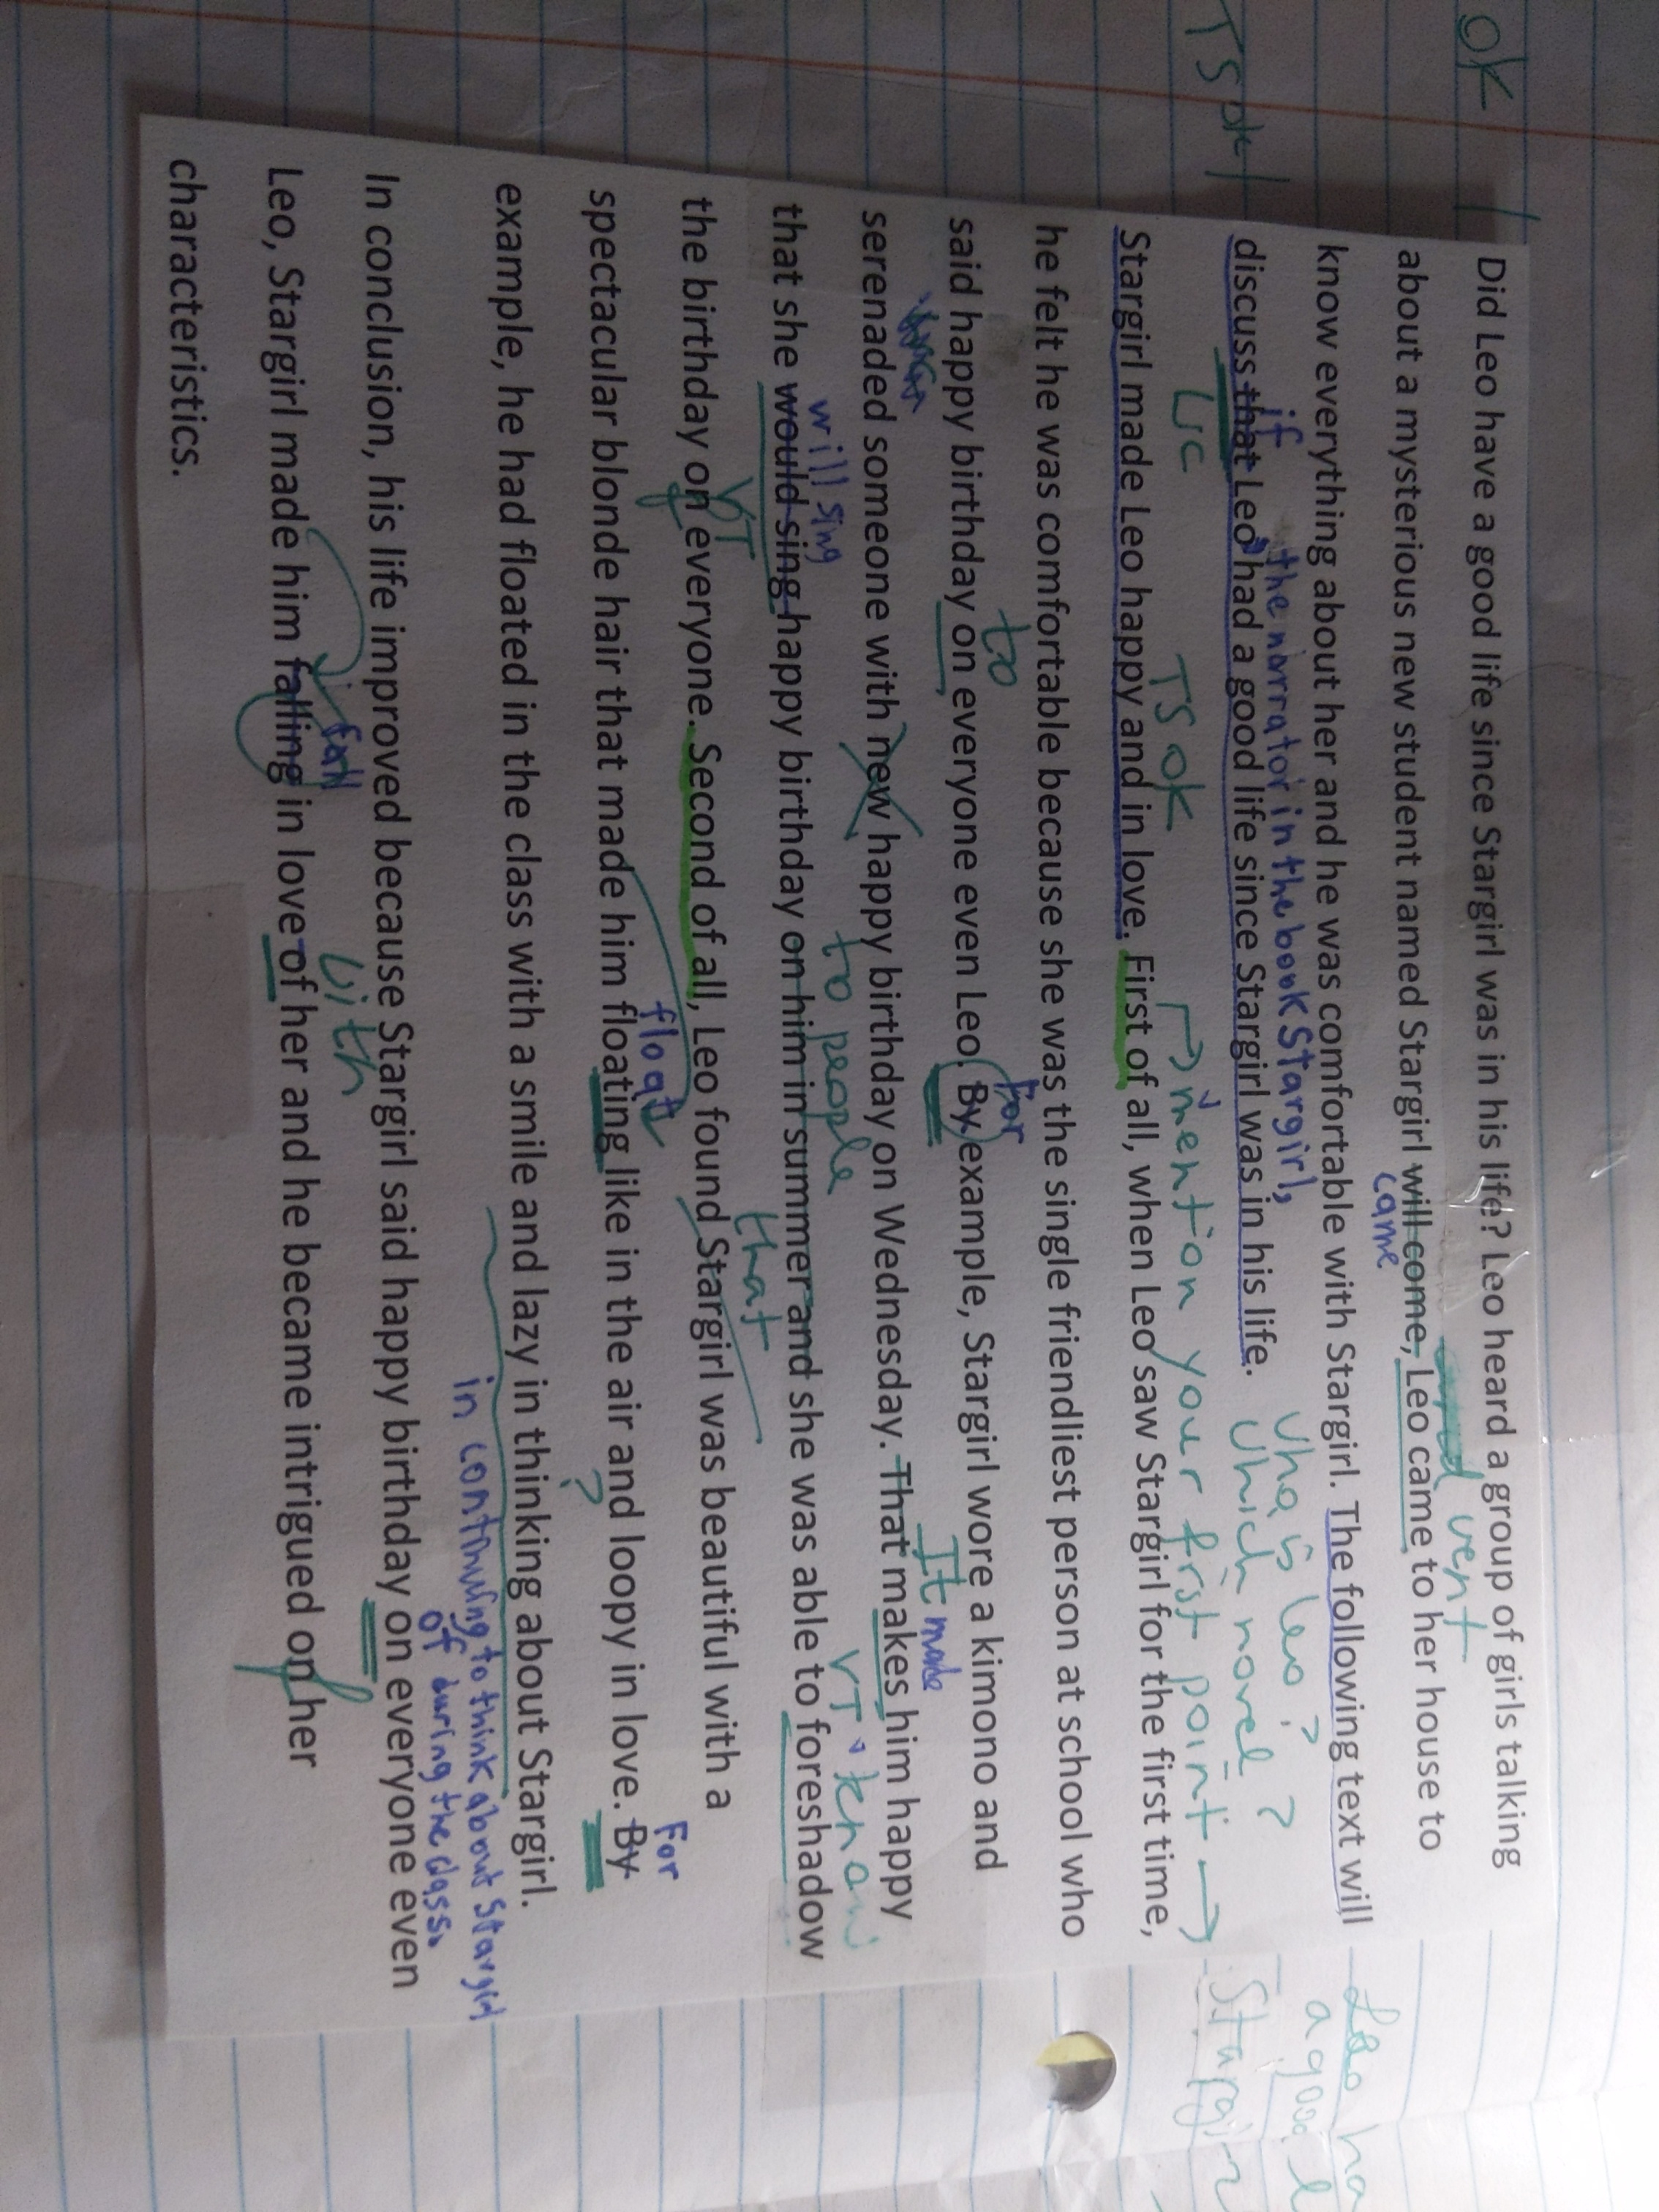 ok
Did Leo have a good life since Stargirl was in his life? Leo heard a group of girls talking
went
about a mysterious new student named Stargirl will come, Leo came to her house to
came
know everything about her and he was comfortable with Stargirl. The following text will
if the narrator in the book Stargirl,
who is Leo?
discuss that Leo had a good life since Stargirl was in his life.
which novel?
TS ok
WC
TS ok
mention your first point
Stargirl made Leo happy and in love. First of all, when Leo saw Stargirl for the first time,
he felt he was comfortable because she was the single friendliest person at school who
to
For
said happy birthday on everyone even Leo. By example, Stargirl wore a kimono and
It made
serenaded someone with new happy birthday on Wednesday. That makes him happy
will sing
to people
VT
know
that she would sing happy birthday on him in summer and she was able to foreshadow
VT
that
the birthday on everyone. Second of all, Leo found Stargirl was beautiful with a
float
For
spectacular blonde hair that made him floating like in the air and loopy in love. By
?
example, he had floated in the class with a smile and lazy in thinking about Stargirl.
in continuing to think about Stargirl
of during the class.
In conclusion, his life improved because Stargirl said happy birthday on everyone even
fall
with
Leo, Stargirl made him falling in love of her and he became intrigued on her
characteristics.